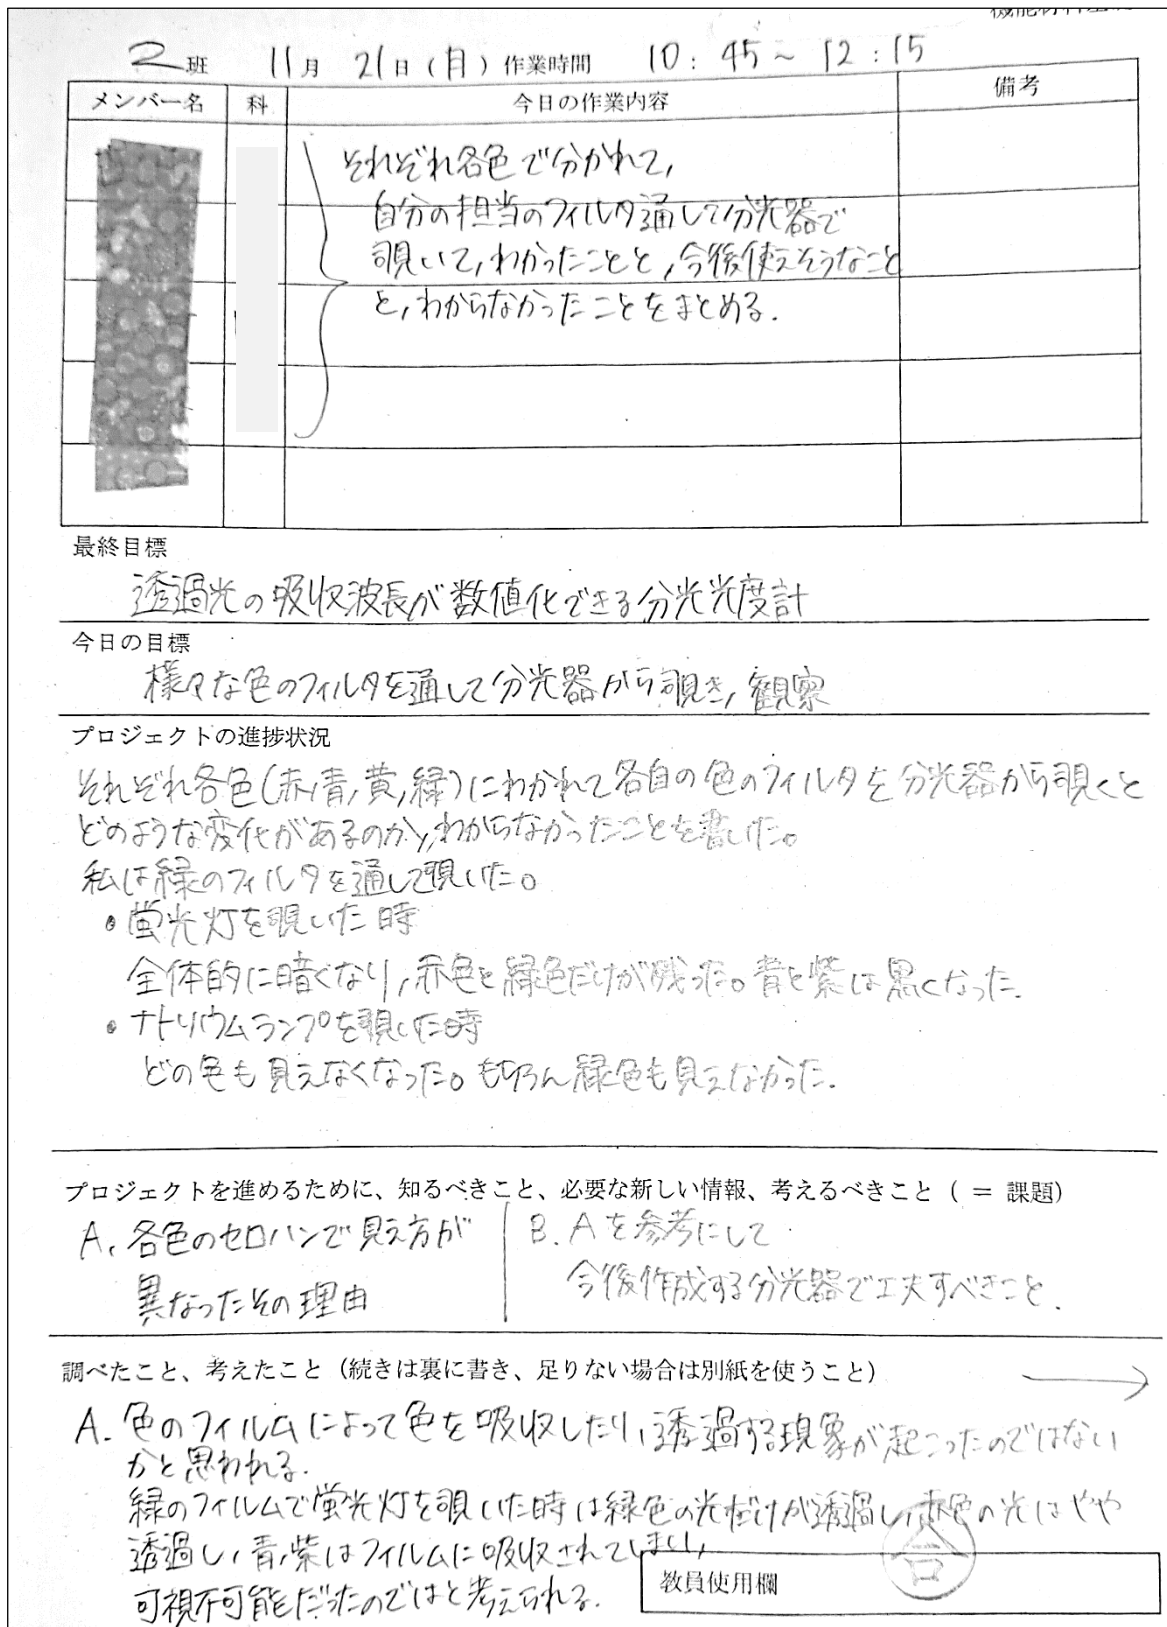 2班 11月 21日(月)作業時間 10:45～12:15
メンバー名 科 今日の作業内容 備考
それぞれ各色で分かれて,
自分の担当のフィルタ通して分光器で
覗いて,わかったことと,今後使えそうなこと
と,わからなかったことをまとめる.
最終目標
透過光の吸収波長が数値化できる分光光度計
今日の目標
様々な色のフィルタを通して分光器から覗き,観察
プロジェクトの進捗状況
それぞれ各色(赤,青,黄,緑)にわかれて各自の色のフィルタを分光器から覗くと
どのような変化があるのか,わからなかったことを書いた。
私は緑のフィルタを通して覗いた。
・蛍光灯を覗いた時
全体的に暗くなり,赤色と緑色だけが残った。青と紫は黒くなった.
・ナトリウムランプを覗いた時
どの色も見えなくなった。もちろん緑色も見えなかった.
プロジェクトを進めるために、知るべきこと、必要な新しい情報、考えるべきこと(＝課題)
A. 各色のセロハンで見え方が
異なったその理由
B. Aを参考にして
今後作成する分光器で工夫すべきこと.
調べたこと、考えたこと(続きは裏に書き、足りない場合は別紙を使うこと) →
A. 色のフィルムによって色を吸収したり,透過する現象が起こったのではない
かと思われる.
緑のフィルムで蛍光灯を覗いた時は緑色の光だけが透過し,赤色の光はやや
透過し,青,紫はフィルムに吸収されてしまい,
可視不可能だったのではと考えられる.
教員使用欄